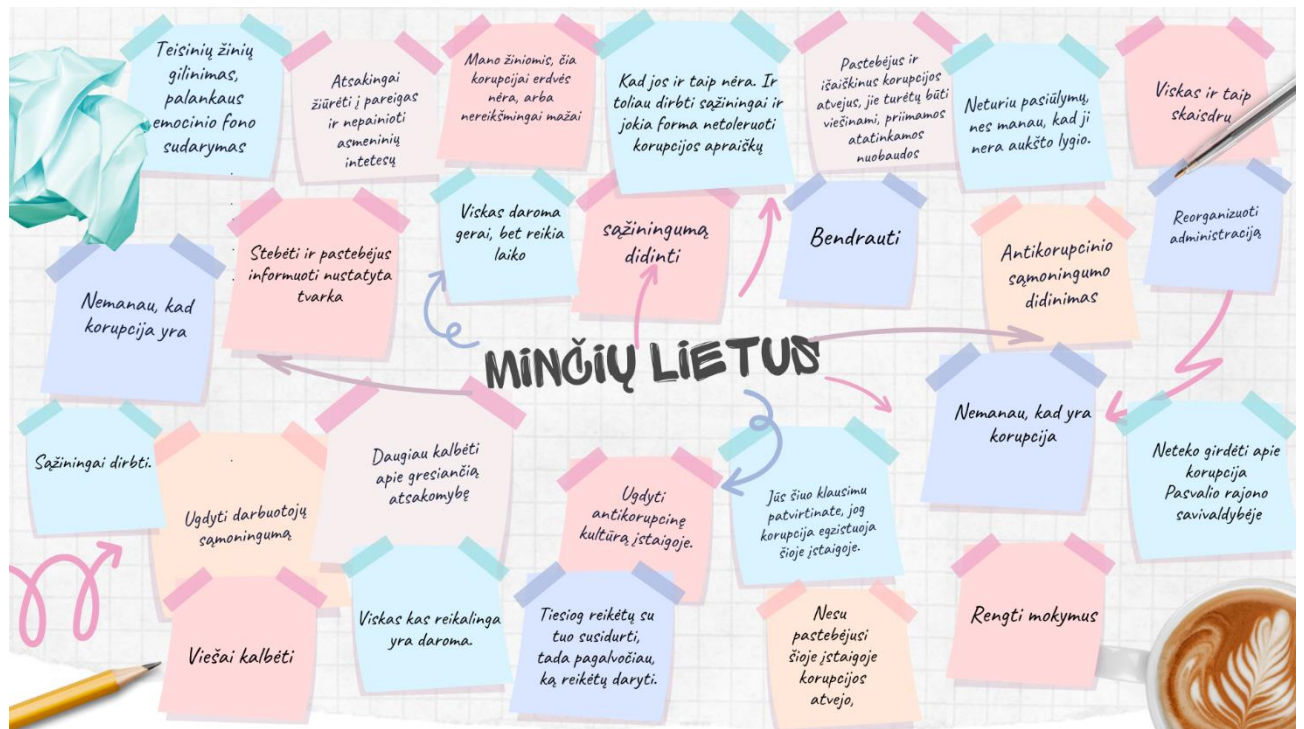 Teisinių žinių
gilinimas,
palankaus
emocinio fono
sudarymas
Atsakingai
žiūrėti į pareigas
ir nepainioti
asmeninių
intetesų
Mano žiniomis, čia
korupcijai erdvės
nėra, arba
nereikšmingai mažai
Kad jos ir taip nėra. Ir
toliau dirbti sąžiningai ir
jokia forma netoleruoti
korupcijos apraiškų
Pastebėjus ir
išaiškinus korupcijos
atvejus, jie turėtų būti
viešinami, priimamos
atatinkamos
nuobaudos
Neturiu pasiūlymų,
nes manau, kad ji
nera aukšto lygio.
Viskas ir taip
skaisdru
Nemanau, kad
korupcija yra
Stebėti ir pastebėjus
informuoti nustatyta
tvarka
Viskas daroma
gerai, bet reikia
laiko
sąžiningumą
didinti
Bendrauti
Antikorupcinio
sąmoningumo
didinimas
Reorganizuoti
administraciją
MINČIŲ LIETUS
Sąžiningai dirbti.
Ugdyti darbuotojų
sąmoningumą
Daugiau kalbėti
apie gresiančią
atsakomybę
Ugdyti
antikorupcinę
kultūrą įstaigoje.
Jūs šiuo klausimu
patvirtinate, jog
korupcija egzistuoja
šioje įstaigoje.
Nemanau, kad yra
korupcija
Neteko girdėti apie
korupcija
Pasvalio rajono
savivaldybėje
Viešai kalbėti
Viskas kas reikalinga
yra daroma.
Tiesiog reikėtų su
tuo susidurti,
tada pagalvočiau,
ką reikėtų daryti.
Nesu
pastebėjusi
šioje įstaigoje
korupcijos
atvejo,
Rengti mokymus